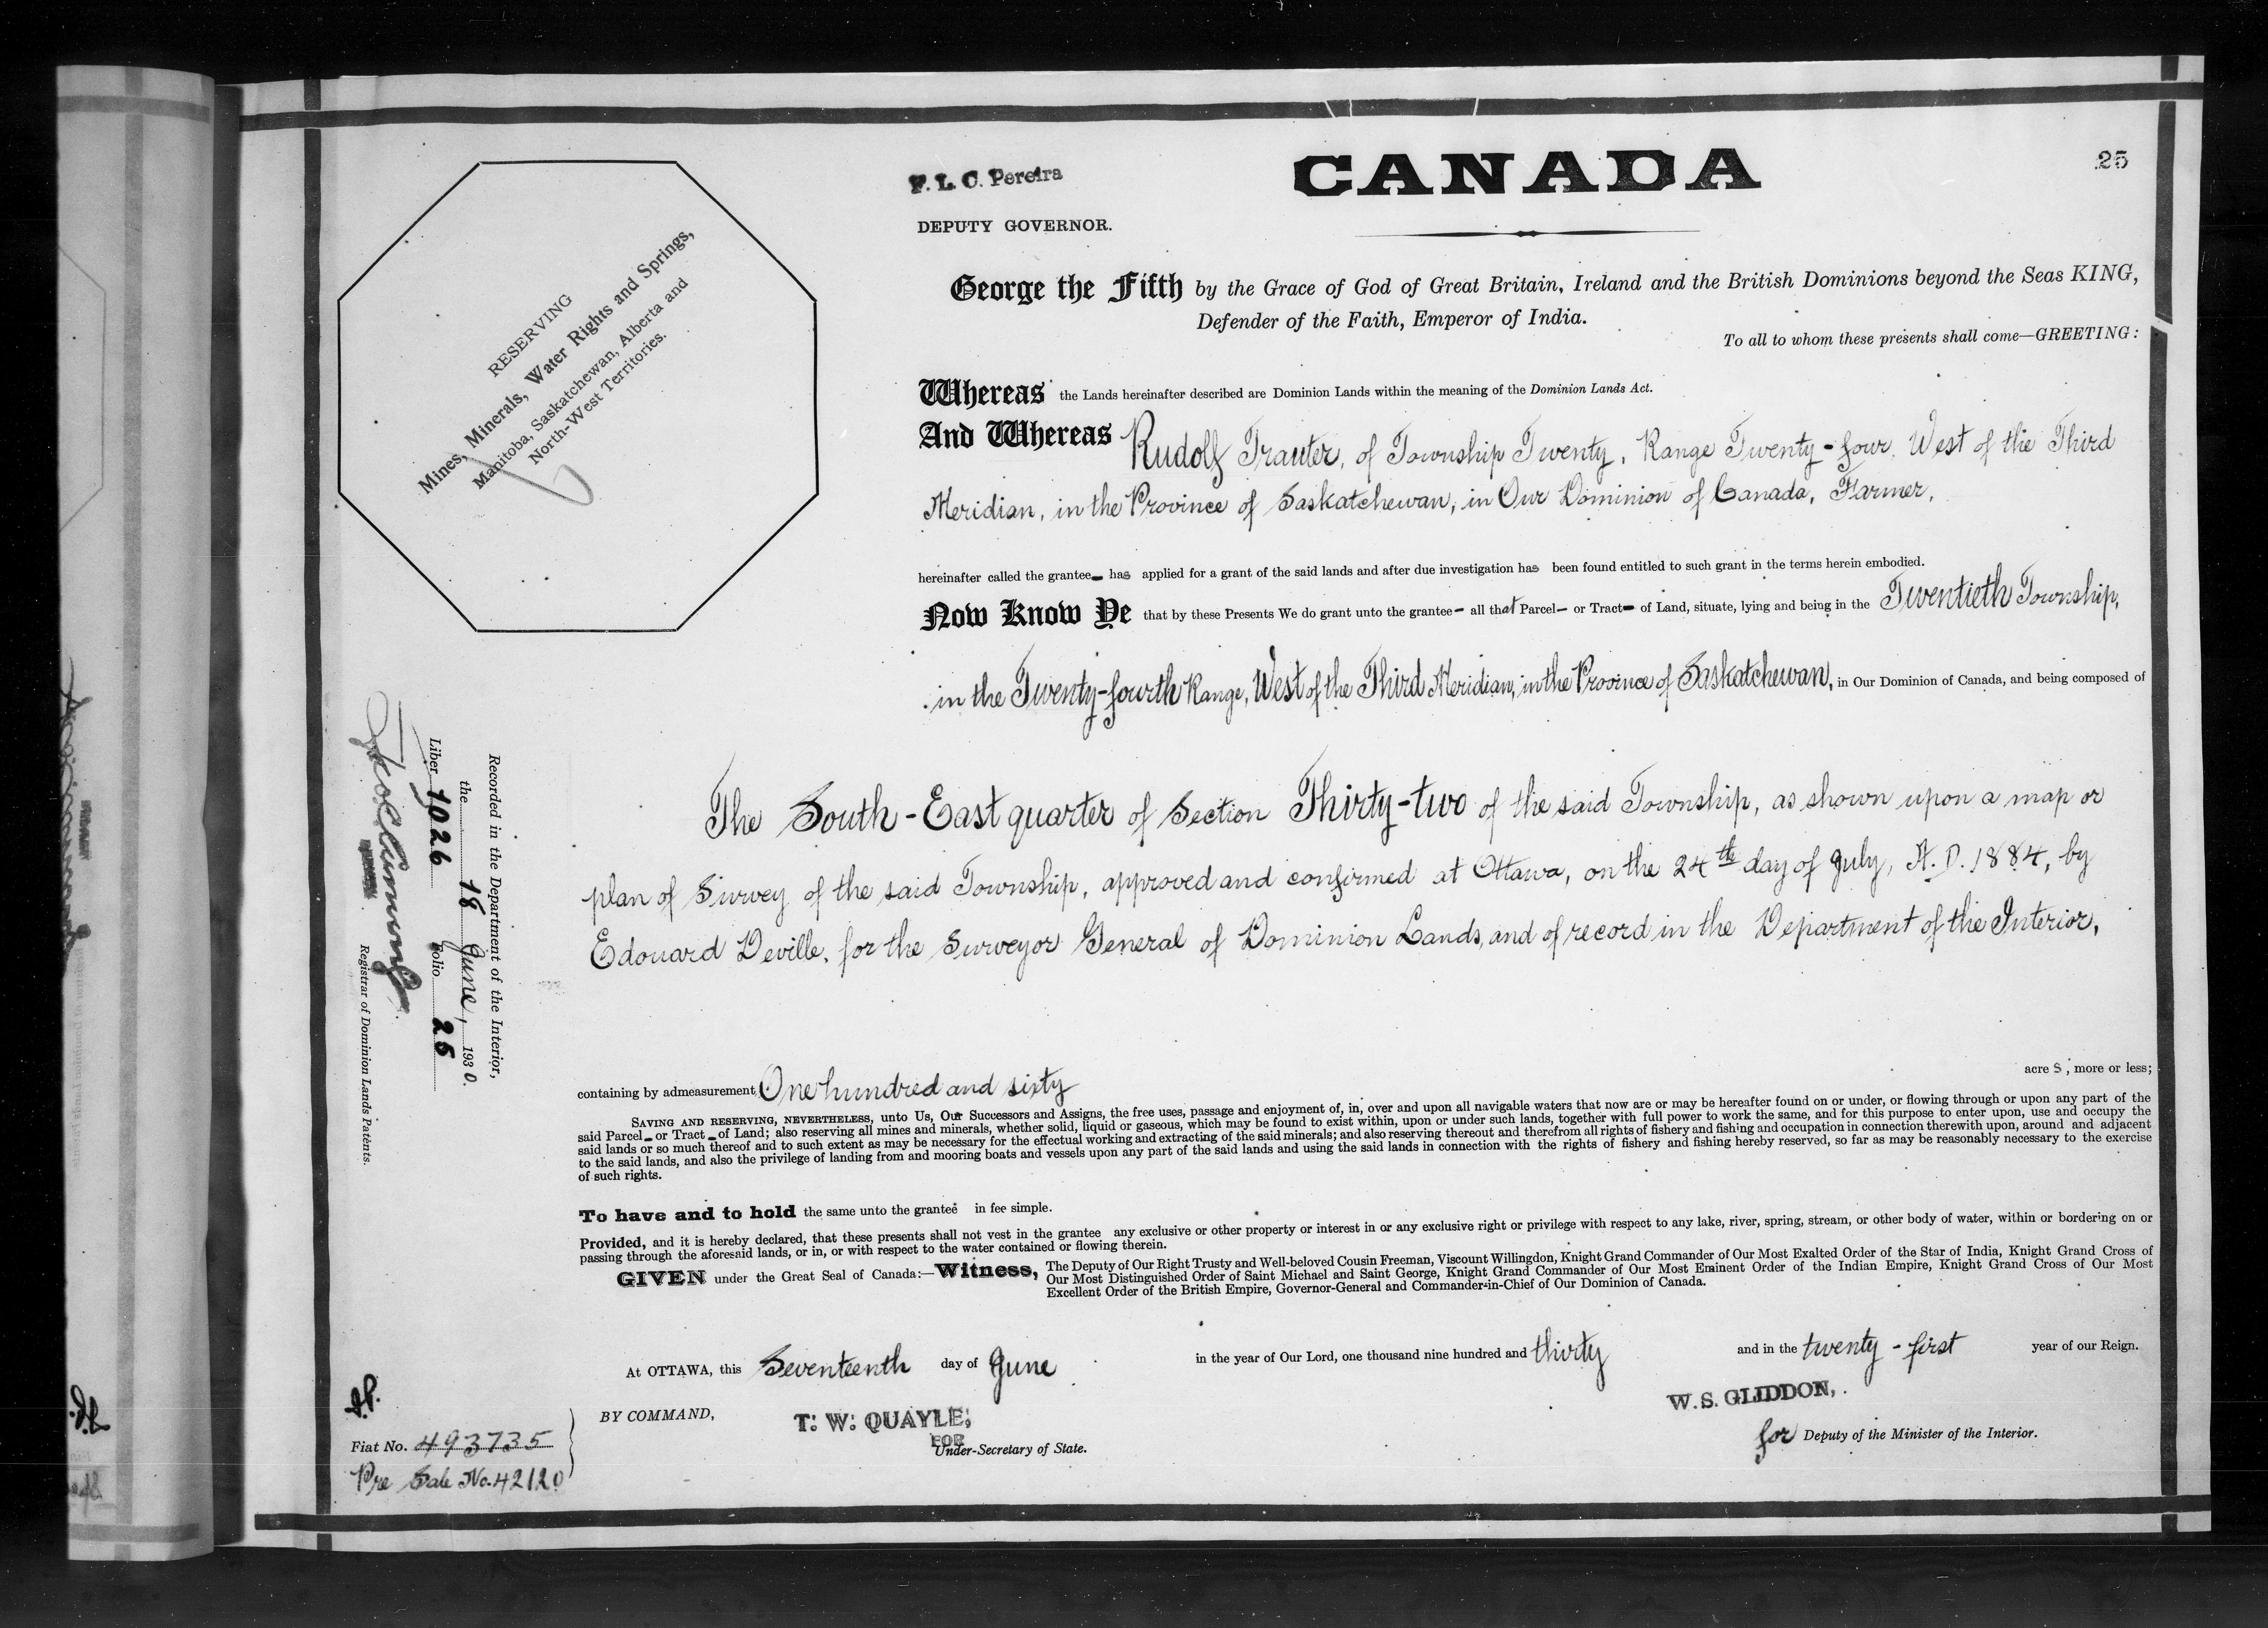 25
F. L. C. Pereira
DEPUTY GOVERNOR.
CANADA
RESERVING
Mines, Minerals, Water Rights and Springs,
Manitoba, Saskatchewan, Alberta and
North-West Territories.
George the Fifth by the Grace of God of Great Britain, Ireland and the British Dominions beyond the Seas KING,
Defender of the Faith, Emperor of India.
To all to whom these presents shall come—GREETING:
Whereas the Lands hereinafter described are Dominion Lands within the meaning of the Dominion Lands Act.
And Whereas Rudolf Trauter, of Township Twenty, Range Twenty-four, West of the Third
Meridian, in the Province of Saskatchewan, in Our Dominion of Canada, Farmer,
hereinafter called the grantee— has applied for a grant of the said lands and after due investigation has been found entitled to such grant in the terms herein embodied.
Now Know Ye that by these Presents We do grant unto the grantee— all that Parcel— or Tract— of Land, situate, lying and being in the Twentieth Township,
in the Twenty-fourth Range, West of the Third Meridian, in the Province of Saskatchewan, in Our Dominion of Canada, and being composed of
The South-East quarter of Section Thirty-two of the said Township, as shown upon a map or
plan of Survey of the said Township, approved and confirmed at Ottawa, on the 24th day of July, A.D. 1884, by
Edouard Deville, for the Surveyor General of Dominion Lands, and of record in the Department of the Interior,
Recorded in the Department of the Interior,
the 18 June, 1930.
Liber 1026 Folio 25
Registrar of Dominion Lands Patents.
containing by admeasurement One hundred and sixty acres, more or less;
SAVING AND RESERVING, NEVERTHELESS, unto Us, Our Successors and Assigns, the free uses, passage and enjoyment of, in, over and upon all navigable waters that now are or may be hereafter found on or under, or flowing through or upon any part of the
said Parcel— or Tract— of Land; also reserving all mines and minerals, whether solid, liquid or gaseous, which may be found to exist within, upon or under such lands, together with full power to work the same, and for this purpose to enter upon, use and occupy the
said lands or so much thereof and to such extent as may be necessary for the effectual working and extracting of the said minerals; and also reserving thereout and therefrom all rights of fishery and fishing and occupation in connection therewith upon, around and adjacent
to the said lands, and also the privilege of landing from and mooring boats and vessels upon any part of the said lands and using the said lands in connection with the rights of fishery and fishing hereby reserved, so far as may be reasonably necessary to the exercise
of such rights.
To have and to hold the same unto the grantee in fee simple.
Provided, and it is hereby declared, that these presents shall not vest in the grantee any exclusive or other property or interest in or any exclusive right or privilege with respect to any lake, river, spring, stream, or other body of water, within or bordering on or
passing through the aforesaid lands, or in, or with respect to the water contained or flowing therein.
GIVEN under the Great Seal of Canada:—Witness, The Deputy of Our Right Trusty and Well-beloved Cousin Freeman, Viscount Willingdon, Knight Grand Commander of Our Most Exalted Order of the Star of India, Knight Grand Cross of
Our Most Distinguished Order of Saint Michael and Saint George, Knight Grand Commander of Our Most Eminent Order of the Indian Empire, Knight Grand Cross of Our Most
Excellent Order of the British Empire, Governor-General and Commander-in-Chief of Our Dominion of Canada.
At OTTAWA, this Seventeenth day of June in the year of Our Lord, one thousand nine hundred and thirty and in the twenty-first year of our Reign.
BY COMMAND,
T. W. QUAYLE,
FOR
Under-Secretary of State.
W. S. GLIDDON,
for Deputy of the Minister of the Interior.
Fiat No. 493735
Pre Sale No. 42120